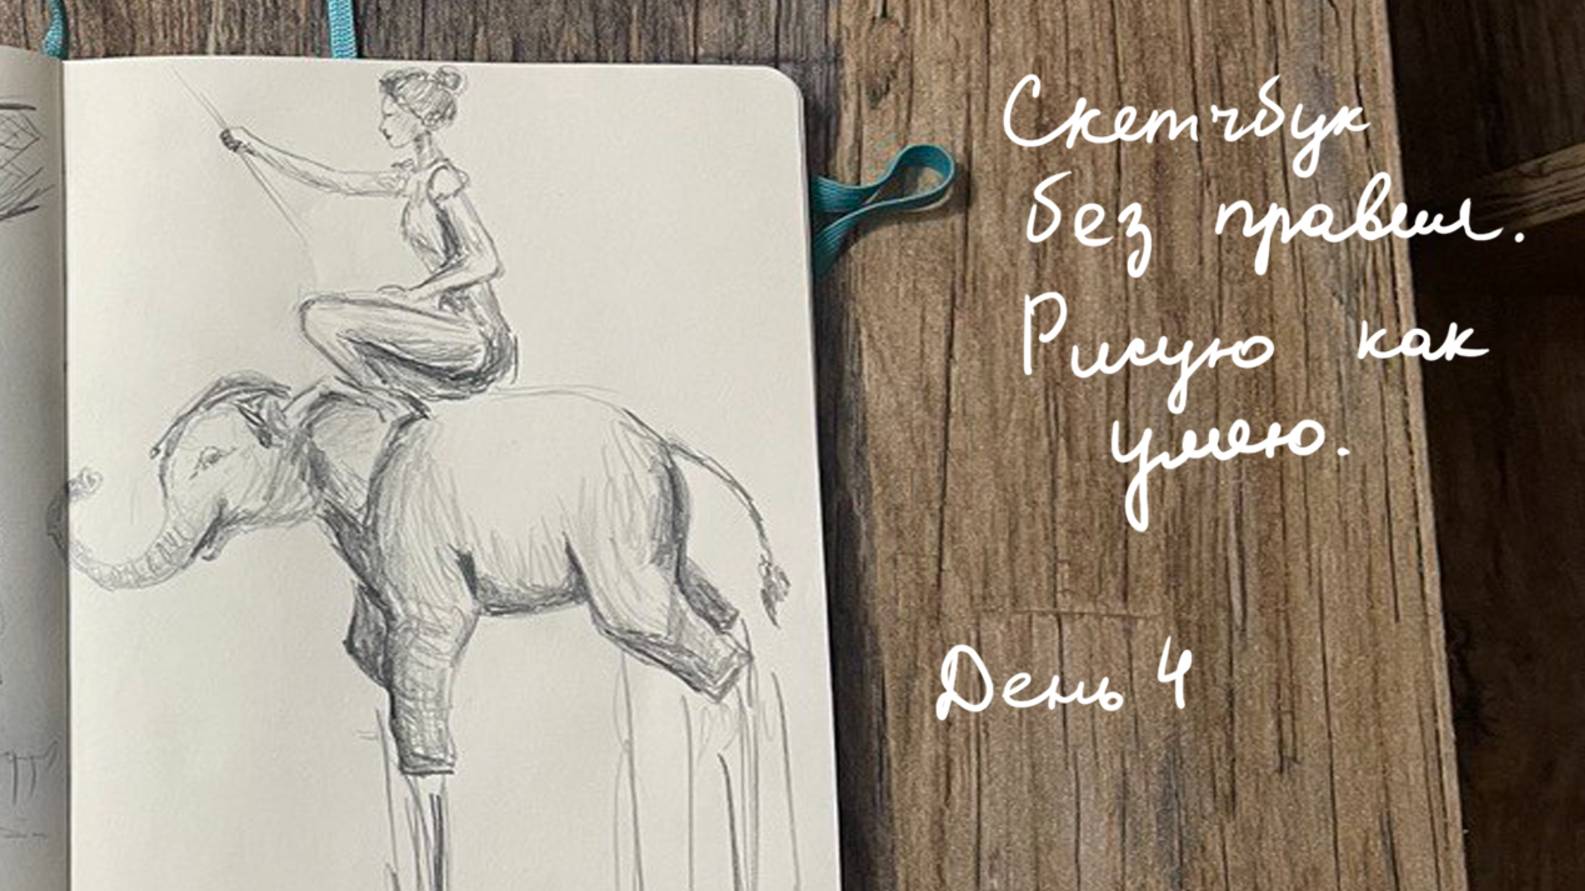 Скетчбук
без правил.
Рисую как
умею.
День 4